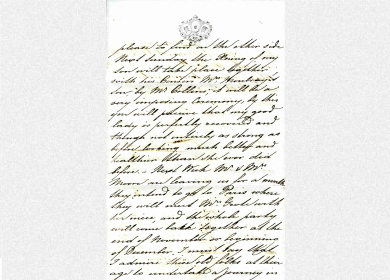 please to find on the other side
Next Sunday the Bring of my
son will take place together
with his Cousin Mr
son, by Mr Collins, it will be a
very imposing Ceremony, by this
you will perceive that my good
lady is perfectly recovered and
though not entirely as strong as
before looking much better and
healthier than she ever did
before. - Next Week Mr & Mrs
Moore are leaving us for a month
they intend to go to Paris where
they will meet Mr with
her niece, and the whole party
will come back together at the
end of November or beginning
of December. I must say that
I admire these old folks at their
age to undertake a journey in